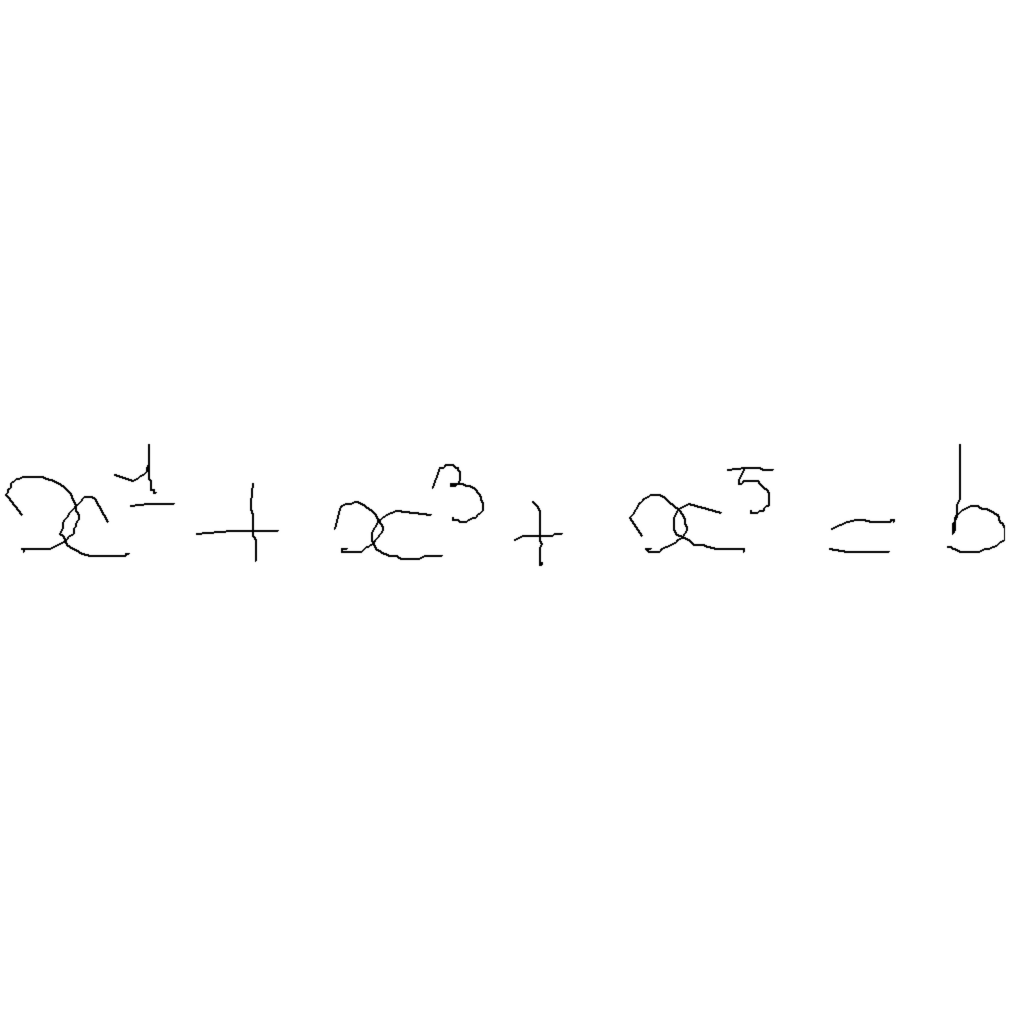 x¹ + x³ + x⁵ = b